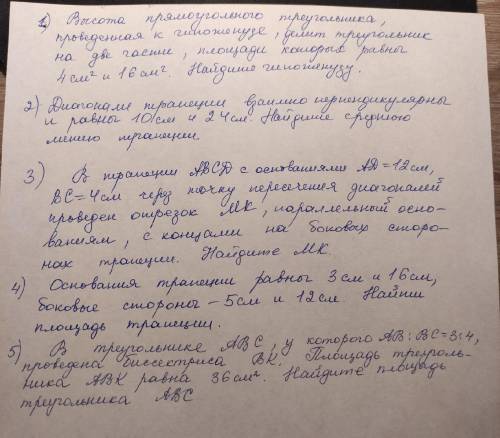 1) Высота прямоугольного треугольника,
проведенная к гипотенузе, делит треугольник
на две части, площади которых равны
4 см² и 16 см². Найдите гипотенузу.
2) Диагонали трапеции взаимно перпендикулярны
и равны 10 см и 24 см. Найдите среднюю
линию трапеции.
3) В трапеции ABCD с основаниями AD=12см,
BC=4см через точку пересечения диагоналей
проведен отрезок MK, параллельный осно-
ваниям, с концами на боковых сторо-
нах трапеции. Найдите MK.
4) Основания трапеции равны 3 см и 16 см,
боковые стороны - 5 см и 12 см. Найти
площадь трапеции.
5) В треугольнике ABC, у которого AB:BC=3:4,
проведена биссектриса BK. Площадь треуголь-
ника ABK равна 36 см². Найдите площадь
треугольника ABC